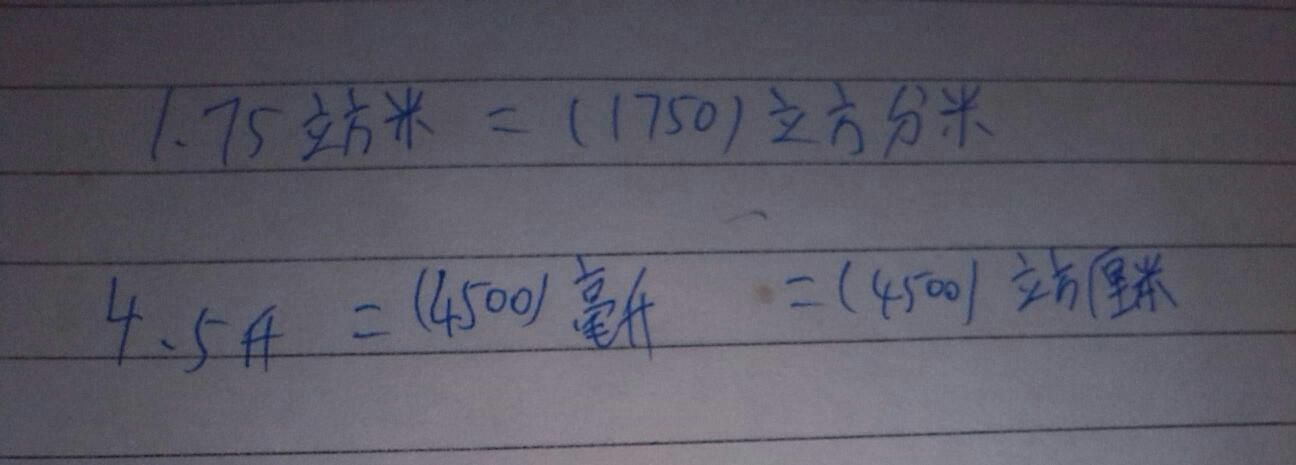 1.75立方米 = (1750)立方分米
4.5升 = (4500)毫升 = (4500)立方厘米